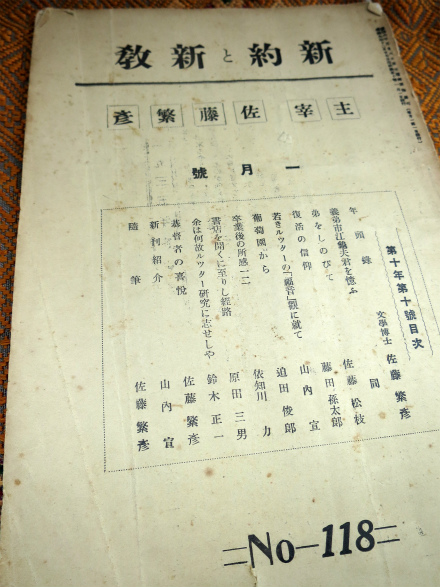 新約と新教
主宰 佐藤繁彥
一月號
第十年第十號目次
年頭錄 文學博士 佐藤繁彥
義弟市江夫君を憶ふ 同
弟をしのびて 佐藤松枝
復活の信仰 藤田孫太郎
若きルッターの「福音」觀に就て 山內宣
葡萄園から 迫田俊郎
卒業後の所感一二 依知川力
書店を開くに至りし經路 原田三男
余は何故ルッター研究に志せしや 鈴木正一
基督者の喜悅 佐藤繁彥
新刊紹介 山內宣
隨筆 佐藤繁彥
No—118